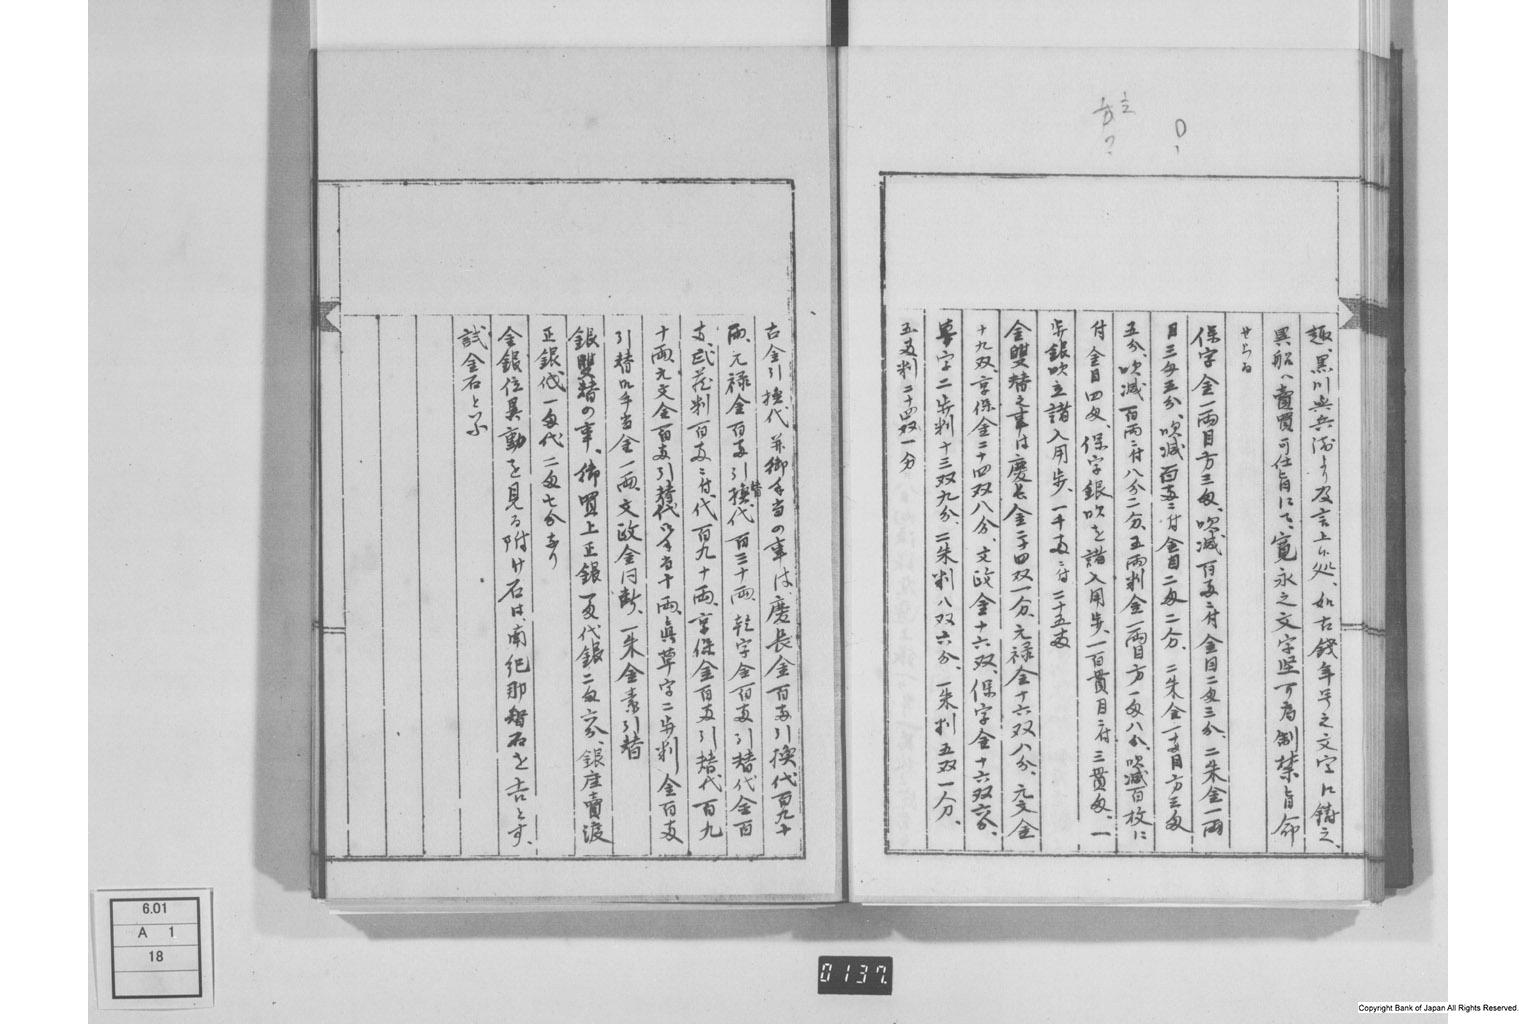 趣、黒川与兵衛より及言上候処、如古銭年号之文字に鋳之、
異船へ売買可仕旨にて、寛永之文字堅可為制禁旨命
せらる
保字金一両目方三匁、吹減百両ニ付金目二匁三分、二朱金一両
目三匁五分、吹減百両ニ付金目二匁二分、二朱金一両目方三匁
五分、吹減百両ニ付八分二分、五両判金一両目方一匁八分、吹減百枚に
付金目四匁、保字銀吹を諸入用歩、一百貫目ニ付三貫匁、一
歩銀吹立諸入用歩、一千両ニ付二十五両
金雙替之事は慶長金二十四双一分、元禄金十六双八分、元文金
十九双、享保金二十四双八分、文政金十六双、保字金十六双六分、
草字二歩判十三双九分、二朱判八双六分、一朱判五双一分、
五両判二十四双一分
古金引換代并御手当の事は、慶長金百両引換代百九十
両、元禄金百両引換代百三十両、乾字金百両引替代金百
両、武蔵判百両ニ付代百九十両、享保金百両引替代百九
十両、元文金百両引替代御手当十両、真草字二歩判金百両
引替御手当金一両、文政金同断、一朱金素引替
銀雙替の事、御買上正銀一匁代銀二匁六分、銀座売渡
正銀代一匁代二匁七分なり
金銀位異動を見る附け石は、南紀那智石を吉とす、
試金石と云
6.01
A 1
18
0137
Copyright Bank of Japan All Rights Reserved.